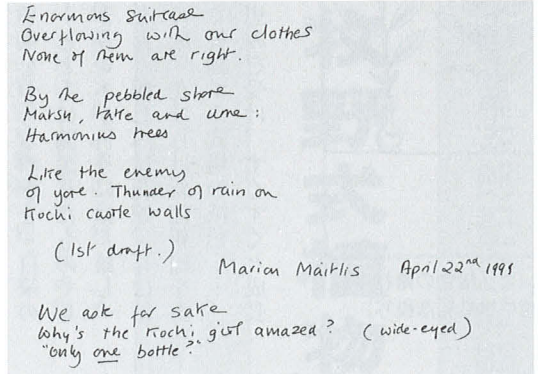 Enormous suitcase
Overflowing with our clothes
None of them are right.
By the pebbled shore
Matsu, take and ume:
Harmonius trees
Like the enemy
of yore. Thunder of rain on
Kochi castle walls
(1st draft.)
Marion Maitlis April 22nd
We ask for sake
Why's the Kochi girl amazed? (wide-eyed)
"Only one bottle?"